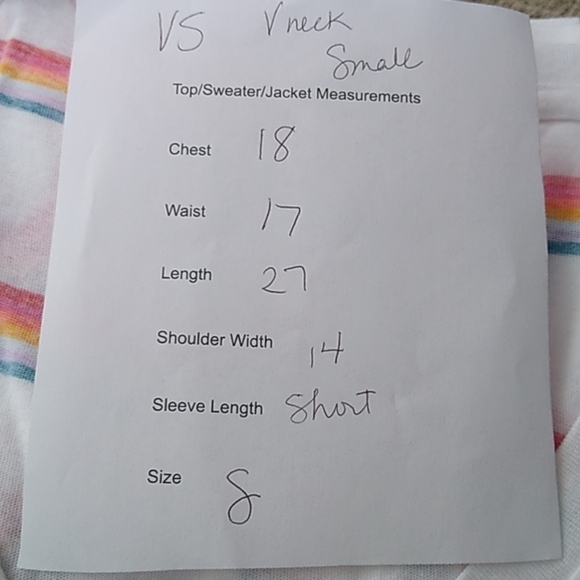 VS V neck
Small
Top/Sweater/Jacket Measurements
Chest 18
Waist 17
Length 27
Shoulder Width 14
Sleeve Length Short
Size S